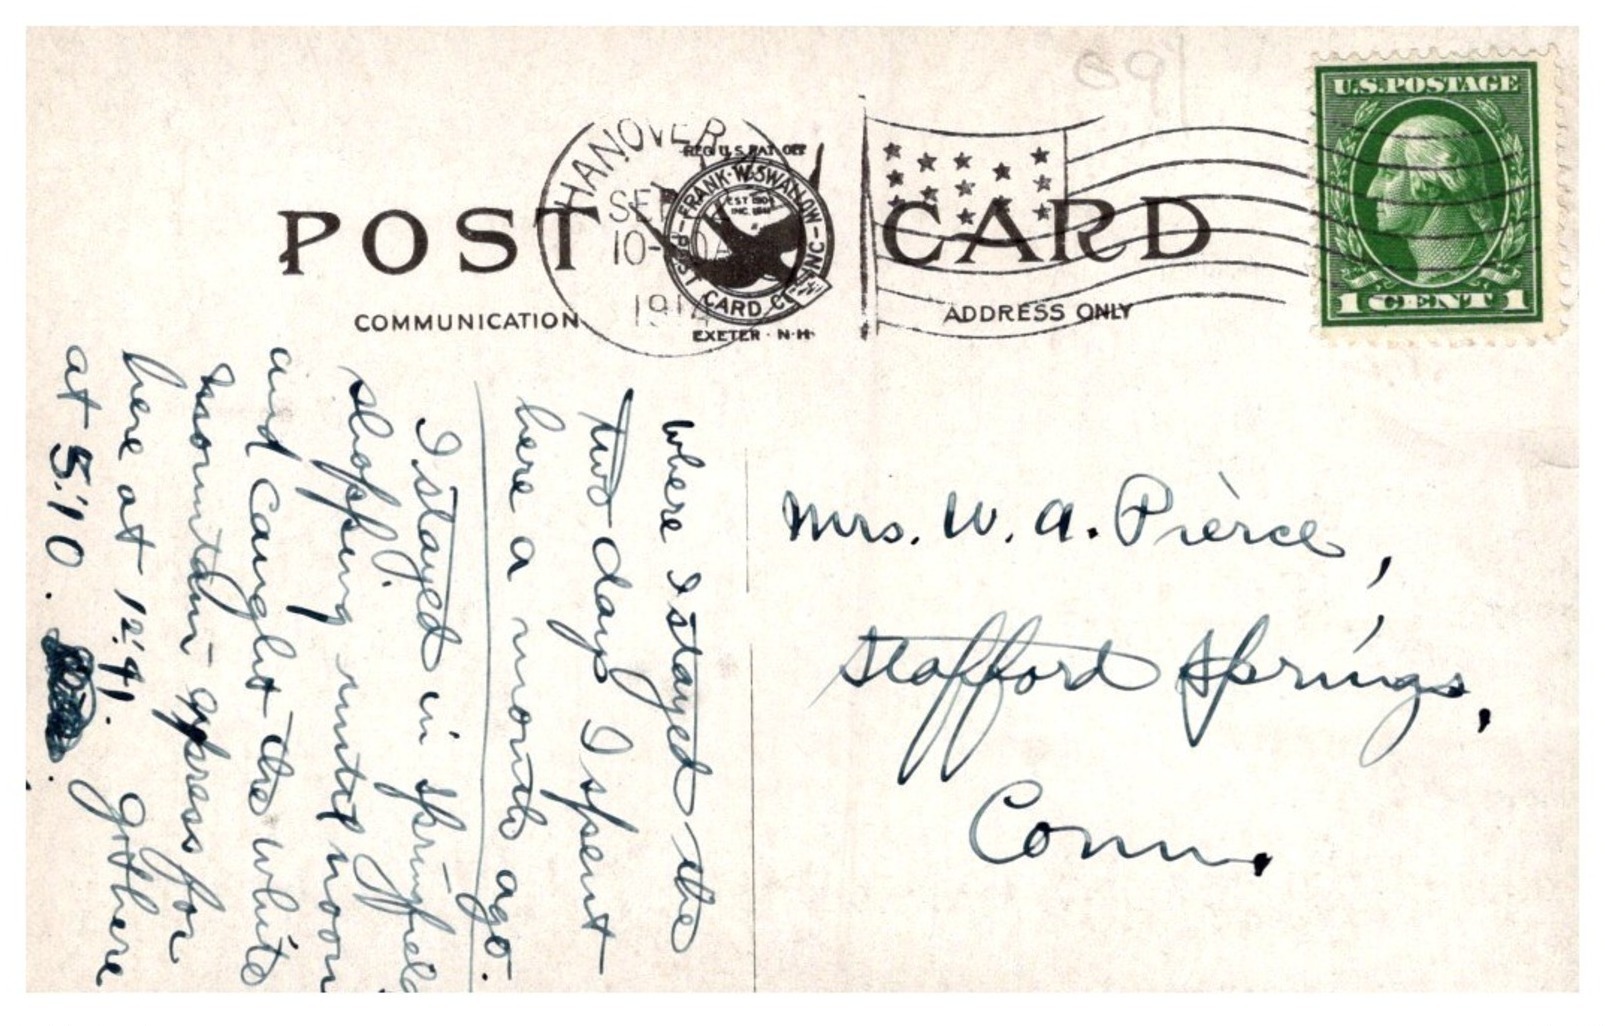 U.S. POSTAGE
1 CENT 1
HANOVER
SEP
10-
1914
REG U.S. PAT. OFF
FRANK·W·SWALLOW
EST 1904
INC. 1941
POST CARD CO. INC
EXETER · N·H·
POST CARD
COMMUNICATION
ADDRESS ONLY
Where I stayed the
two days I spent
here a month ago.
I stayed in Springfield
shopping until noon
and caught the White
Mountain express for
here at 12:41. got here
at 5:10.
Mrs. W. A. Pierce,
Stafford Springs,
Conn.